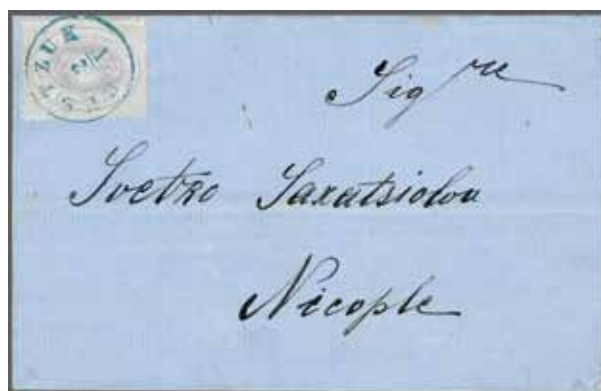 ZUK
Sig re
Svetko Saxatsiolou
Nicople